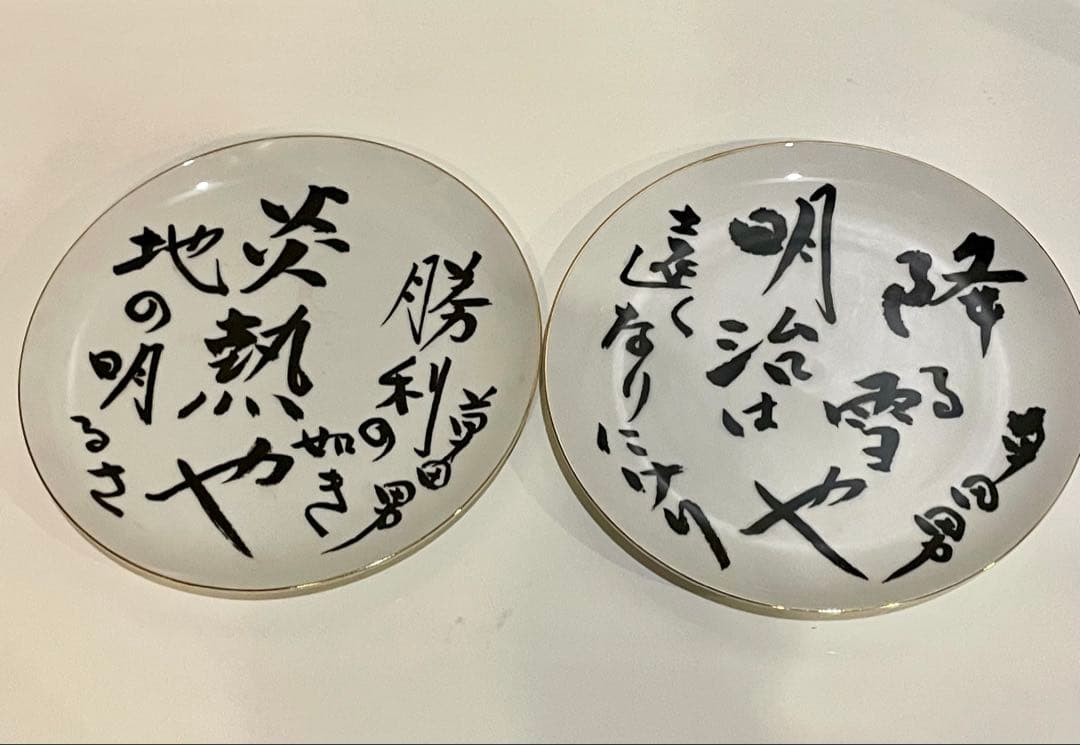 炎熱や
勝利の如き
地の明るさ
草田男
降る雪や
明治は
遠くなりにけり
草田男